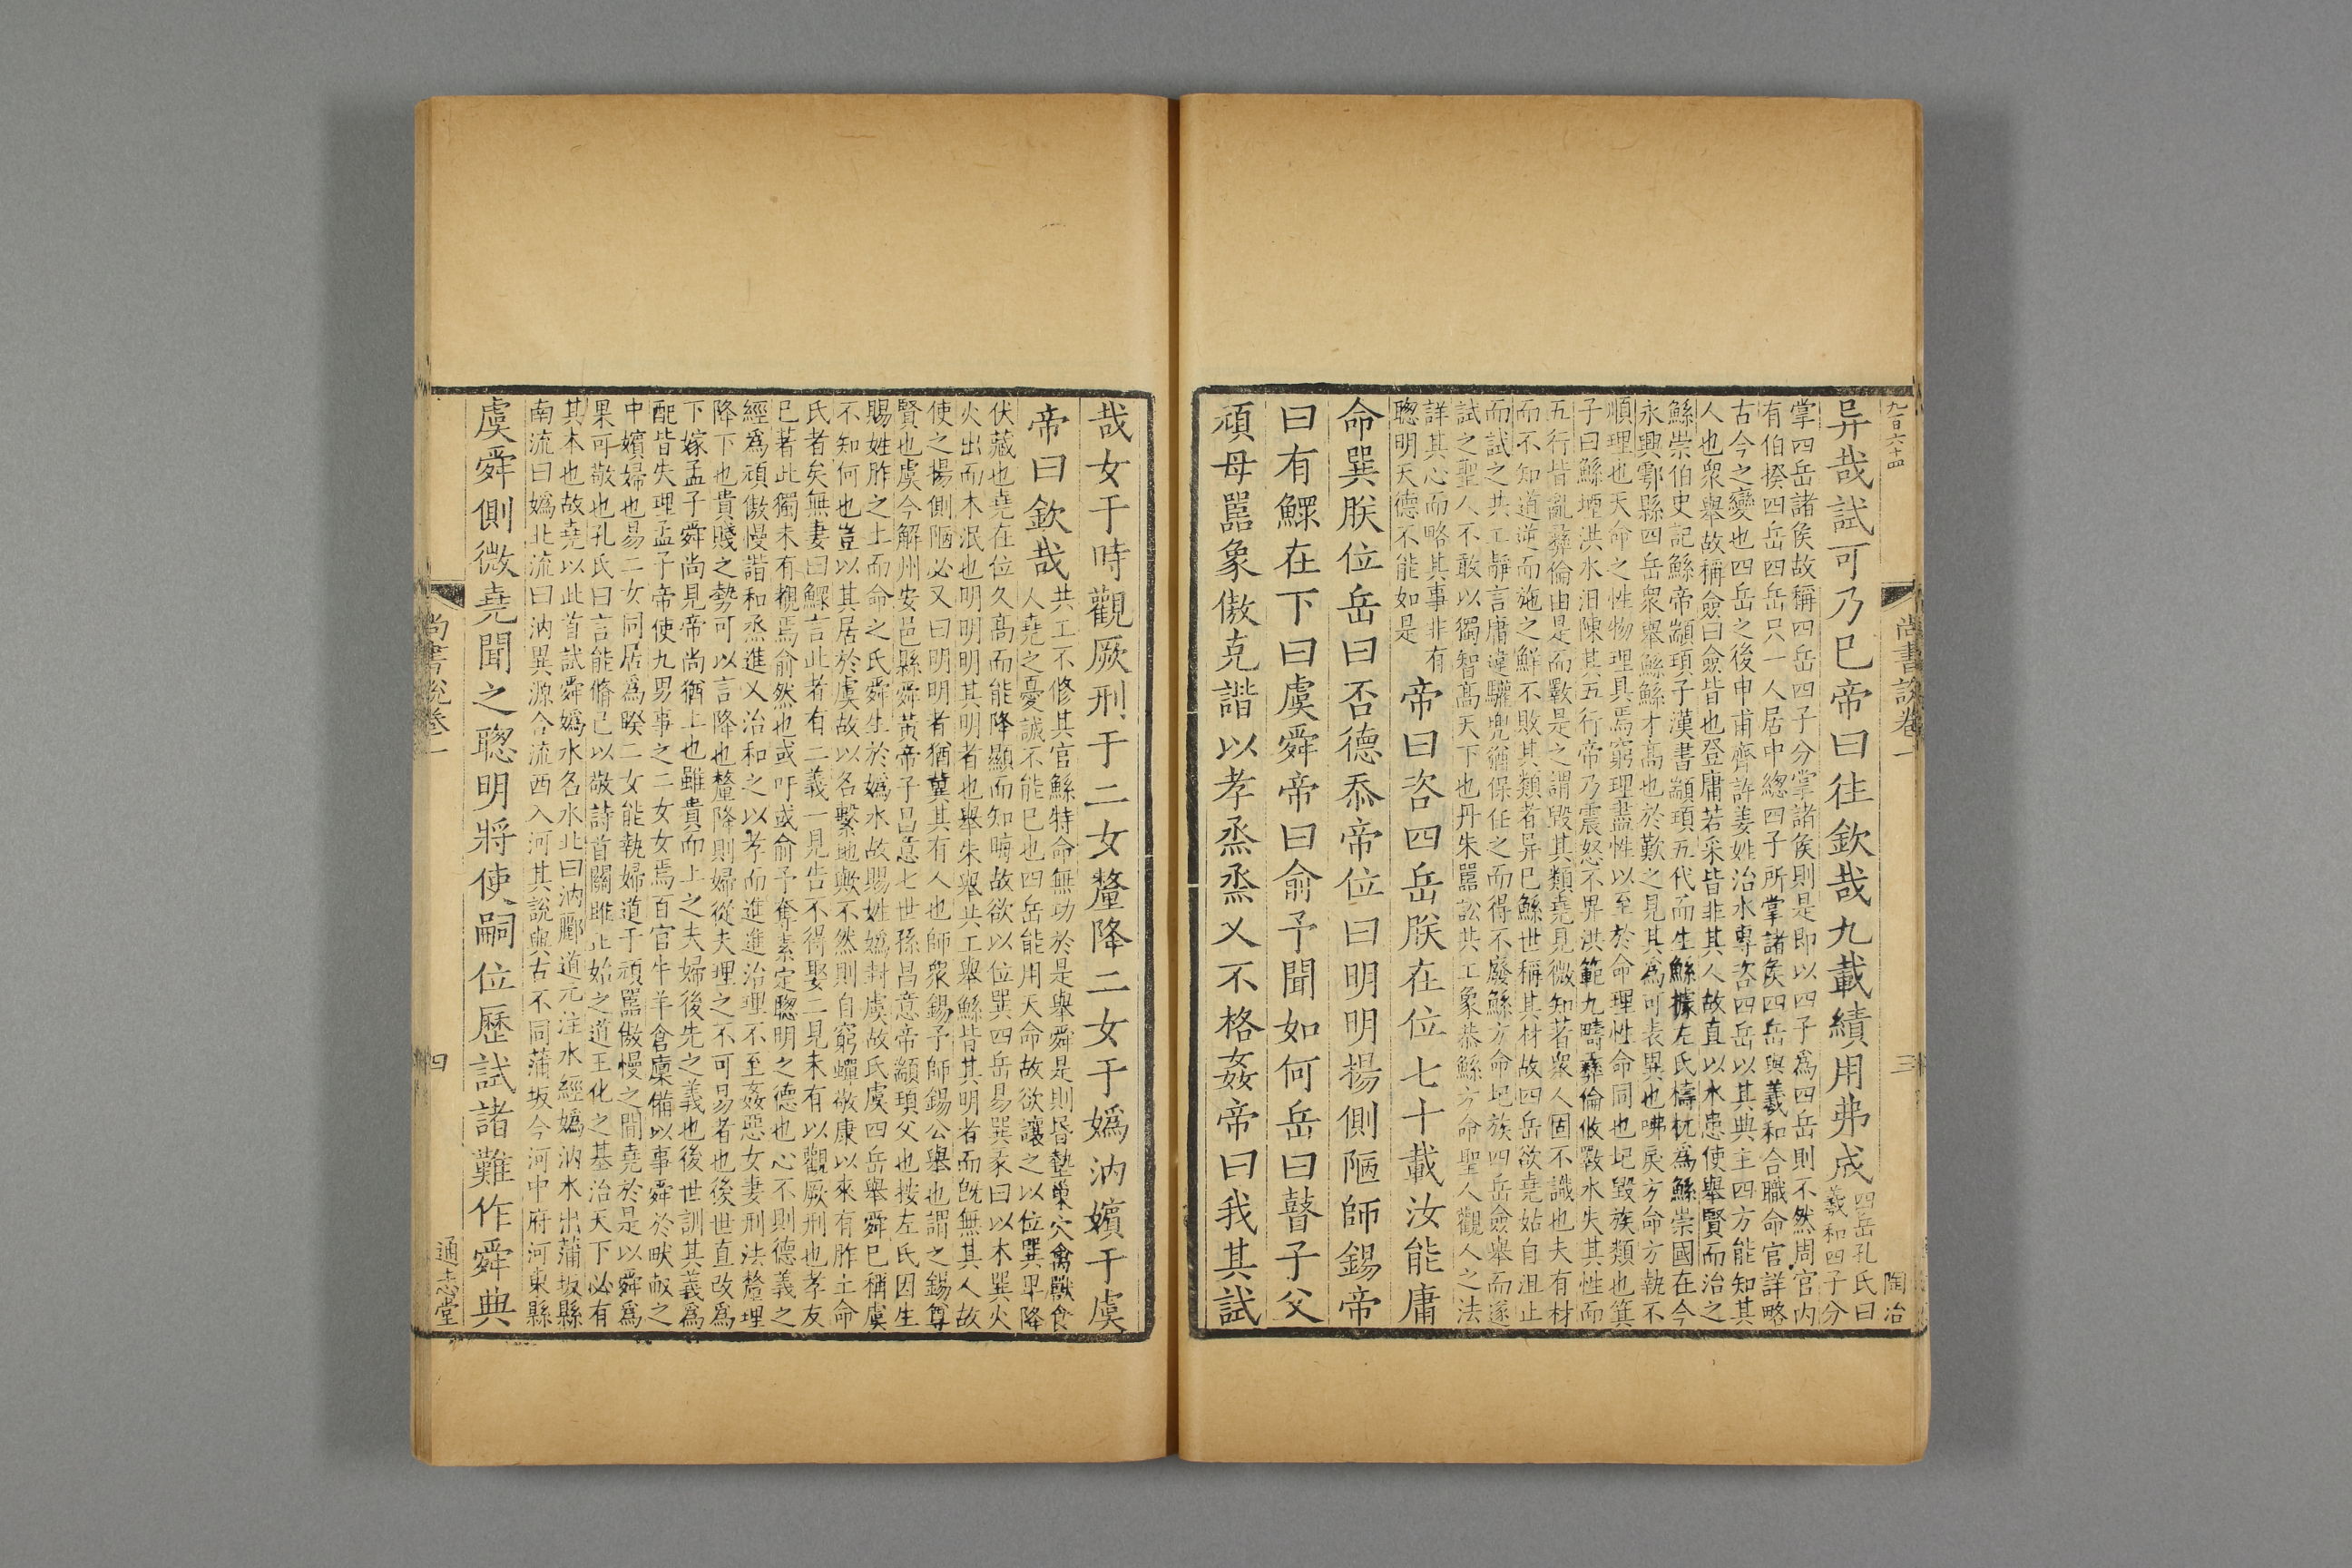 九百六十四
尚書說卷一
三
陶冶
异哉試可乃巳帝曰往欽哉九載績用弗成
四岳孔氏曰
羲和四子分
掌四岳諸侯故稱四岳四子分掌諸侯則是即以四子爲四岳則不然周官内
有伯揆四岳四岳只一人居中緫四子所掌諸侯四岳與羲和合職命官詳略
古今之變也四岳之後申甫齊許姜姓治水專咨四岳以其典主四方能知其
人也衆舉故稱僉曰僉皆也登庸若采皆非其人故直以水患使舉賢而治之
鯀崇伯史記鯀帝顓頊子漢書顓頊五代而生鯀據左氏檮杌爲鯀崇國在今
永興鄠縣四岳衆舉鯀鯀才高也於歎之見其爲可表異也咈戾方命方執不
順理也天命之性物理具焉窮理盡性以至於命理性命同也圮毁族類也箕
子曰鯀堙洪水汩陳其五行帝乃震怒不畀洪範九疇彝倫攸斁水失其性而
五行皆亂彝倫由是而斁是之謂毁其類堯見微知著衆人固不識也夫有材
而不知道逆而施之鮮不敗其類者异巳鯀世稱其材故四岳欲堯姑自沮止
而試之共工靜言庸違驩兜猶保任之而得不廢鯀方命圮族四岳僉舉而遂
試之聖人不敢以獨智高天下也丹朱嚚訟共工象恭鯀方命聖人觀人之法
詳其心而略其事非有
聰明天德不能如是
帝曰咨四岳朕在位七十載汝能庸
命巽朕位岳曰否德忝帝位曰明明揚側陋師錫帝
曰有鰥在下曰虞舜帝曰俞予聞如何岳曰瞽子父
頑母嚚象傲克諧以孝烝烝乂不格姦帝曰我其試
哉女于時觀厥刑于二女釐降二女于嬀汭嬪于虞
帝曰欽哉
共工不修其官鯀特命無功於是舉舜是則昏墊巢穴禽獸食
人堯之憂誠不能巳也四岳能用天命故欲讓之以位巽卑降
伏藏也堯在位久高而能降顯而知晦故欲以位巽四岳易巽彖曰以木巽火
火出而木泯也明明明其明者也舉朱舉共工舉鯀皆其明者而旣無其人故
使之揚側陋必又曰明明者猶冀其有人也師衆錫予師錫公舉也謂之錫尊
賢也虞今解州安邑縣舜黃帝子昌意七世孫昌意帝顓頊父也按左氏因生
賜姓胙之土而命之氏舜生於嬀水故賜姓嬀封虞故氏虞四岳舉舜巳稱虞
不知何也豈以其居於虞故以名繫地歟不然則自窮蟬敬康以來有胙土命
氏者矣無妻曰鰥言此者有二義一見告不得娶二見未有以觀厥刑也孝友
巳著此獨未有覩焉俞然也或吁或俞予奪素定聰明之德也心不則德義之
經爲頑傲慢諧和烝進乂治和之以孝而進進治理不至姦惡女妻刑法釐理
降下也貴賤之勢可以言降也釐降則婦從夫理之不可易者也後世直改爲
下嫁孟子舜尚見帝尚猶上也雖貴而上之夫婦後先之義也後世訓其義爲
配皆失理孟子帝使九男事之二女女焉百官牛羊倉廩備以事舜於畎畝之
中嬪婦也易二女同居爲睽二女能執婦道于頑嚚傲慢之間堯於是以舜爲
果可敬也孔氏曰言能脩己以敬詩首關雎正始之道王化之基治天下必有
其本也故堯以此首試舜嬀水名水北曰汭酈道元注水經嬀汭水出蒲坂縣
南流曰嬀北流曰汭異源合流西入河其說與古不同蒲坂今河中府河東縣
虞舜側微堯聞之聰明將使嗣位歷試諸難作舜典
尚書說卷一
四
通志堂